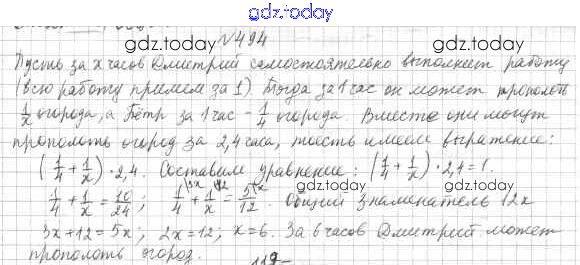 gdz.today
№494
gdz.today gdz.today
Пусть за x часов Дмитрий самостоятельно выполнит работу
(всю работу примем за 1). Тогда за 1 час он может прополоть
1/x огорода, а Пётр за 1 час - 1/4 огорода. Вместе они могут
прополоть огород за 2,4 часа, то есть имеем выражение:
(1/4 + 1/x) · 2,4. Составим уравнение: (1/4 + 1/x) · 2,4 = 1.
1/4 + 1/x = 10/24; 1/4 + 1/x = 5/12. Общий знаменатель 12x
3x + 12 = 5x; 2x = 12; x = 6. За 6 часов Дмитрий может
прополоть огород.
gdz.today gdz.today